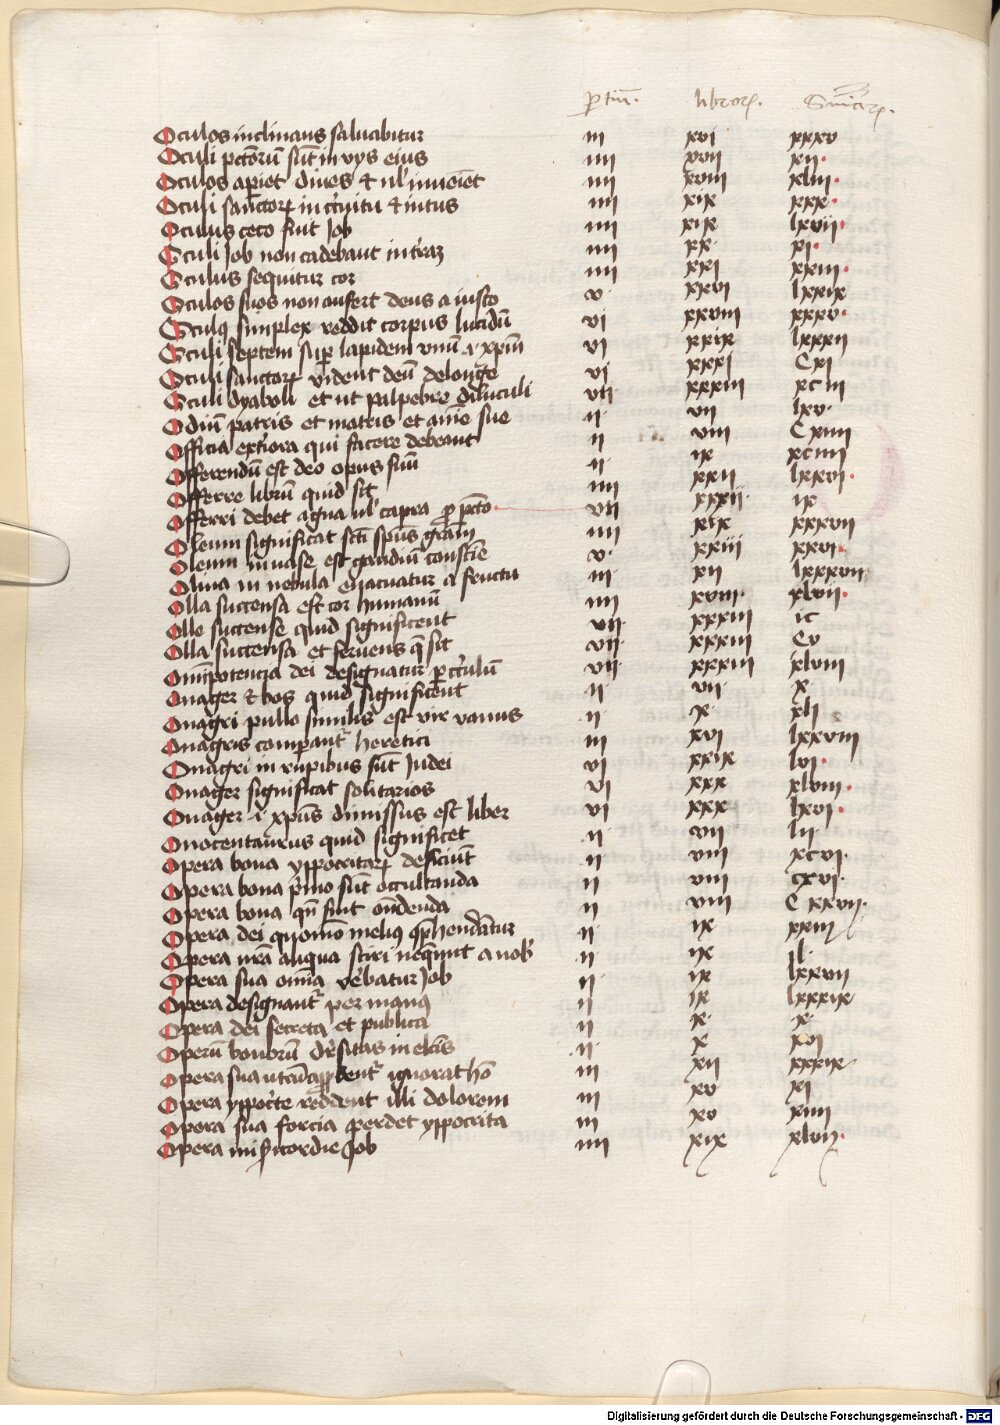 ptiū. librorꝝ. Sūiarꝝ.
Oculos inclinans saluabitur iii xvi xxxv
Oculi pctorū sūt in vijs eius iiii xvii xii·
Oculos apiet diues et nl' inueiet iiii xviii xliii·
Oculi sanctorꝝ in circuitu et intus iiii xix xxx·
Oculus ceco fuit Job iiii xix lxvii·
Oculi Job non cadebant in terꝝ iiii xx xi·
Oculus sequitur cor iiii xxi xxiii·
Oculos suos non aufert deus a iusto v xxvi lxxix
Oculꝰ simplex reddit corpus lucidū vi xxviii xxxv·
Oculi septem sup lapidem vnū .i. xpm vi xxix lxxxii
Oculi sanctorꝝ vident deū delonge vi xxxi Cxi
Oculi dyaboli et ut palpebre diluculi vii xxxiii xciii
Odiū patris et matris et aīe sue ii vii lxv·
Officia exteriora qui facere debeant ii viii Cxiiii
Offerendū est deo opus suū ii ix xciiii
Offerre librū quid sit iiii xxii lxxvi·
Offerri debet agna ul' capra p pcto vii xxxii· ix
Oleum significat scti spūs gram iiii xix xxxvii
Oleum in uase est gaudiū consciē v· xxiii xxvi·
Oliua in nebula euacuatur a fructu iii xii lxxxvii
Olla succensa est cor humanū iiii xviii· xlvii·
Olle succense quid significent vii· xxxiii ic
Olla succensa et feruens q̄ sit vii· xxxiii Cv
Omīpotencia dei designatur p circulū vii· xxxiii xlviii
Onager et bos quid significent ii vii x·
Onagri pullo similis est vir vanus ii x xli
Onagris compantr heretici iii xvi lxxviii
Onagri in rupibus sūt Judei vi xxix lvi·
Onager significat solitarios vi xxx xlviii·
Onager .i. xpūs dimissus est liber vi xxx lxvi·
Onocentaurus quid significet ii vii lii·
Opera bona yppocritarꝝ deficiūt ii viii xcvi·
Opera bona pmo sūt occultanda ii viii cxvi·
Opera bona qn sint ondenda ii viii Cxxvii·
Opera dei quomō melius ꝯphendātur ii ix xxiii
Opera nrā aliqua sciri nequnt a nob' ii ix il·
Opera sua omīa verebatur Job ii ix lxxvii
Opera designantr per manꝰ ii ix lxxxix
Opera dei secreta et publica ii x· x·
Operū bonorū diuersitas in elcīs ii x xvi
Opera sua utrū approbentr ignorat hō iii xii xxxix
Opera yppocrite reddent illi dolorem iii xv xi
Opera sua forcia perdet yppocrita iii xv xiiii
Opera misericordie Job iiii xix xlvii·
Digitalisierung gefördert durch die Deutsche Forschungsgemeinschaft - DFG